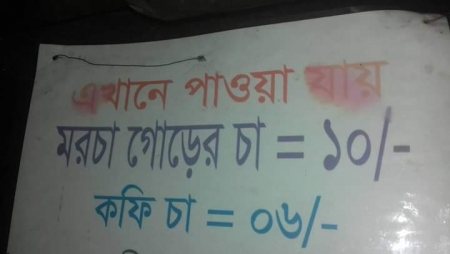 এখানে পাওয়া যায়
মরচা গোড়ের চা = ১০/-
কফি চা = ০৬/-